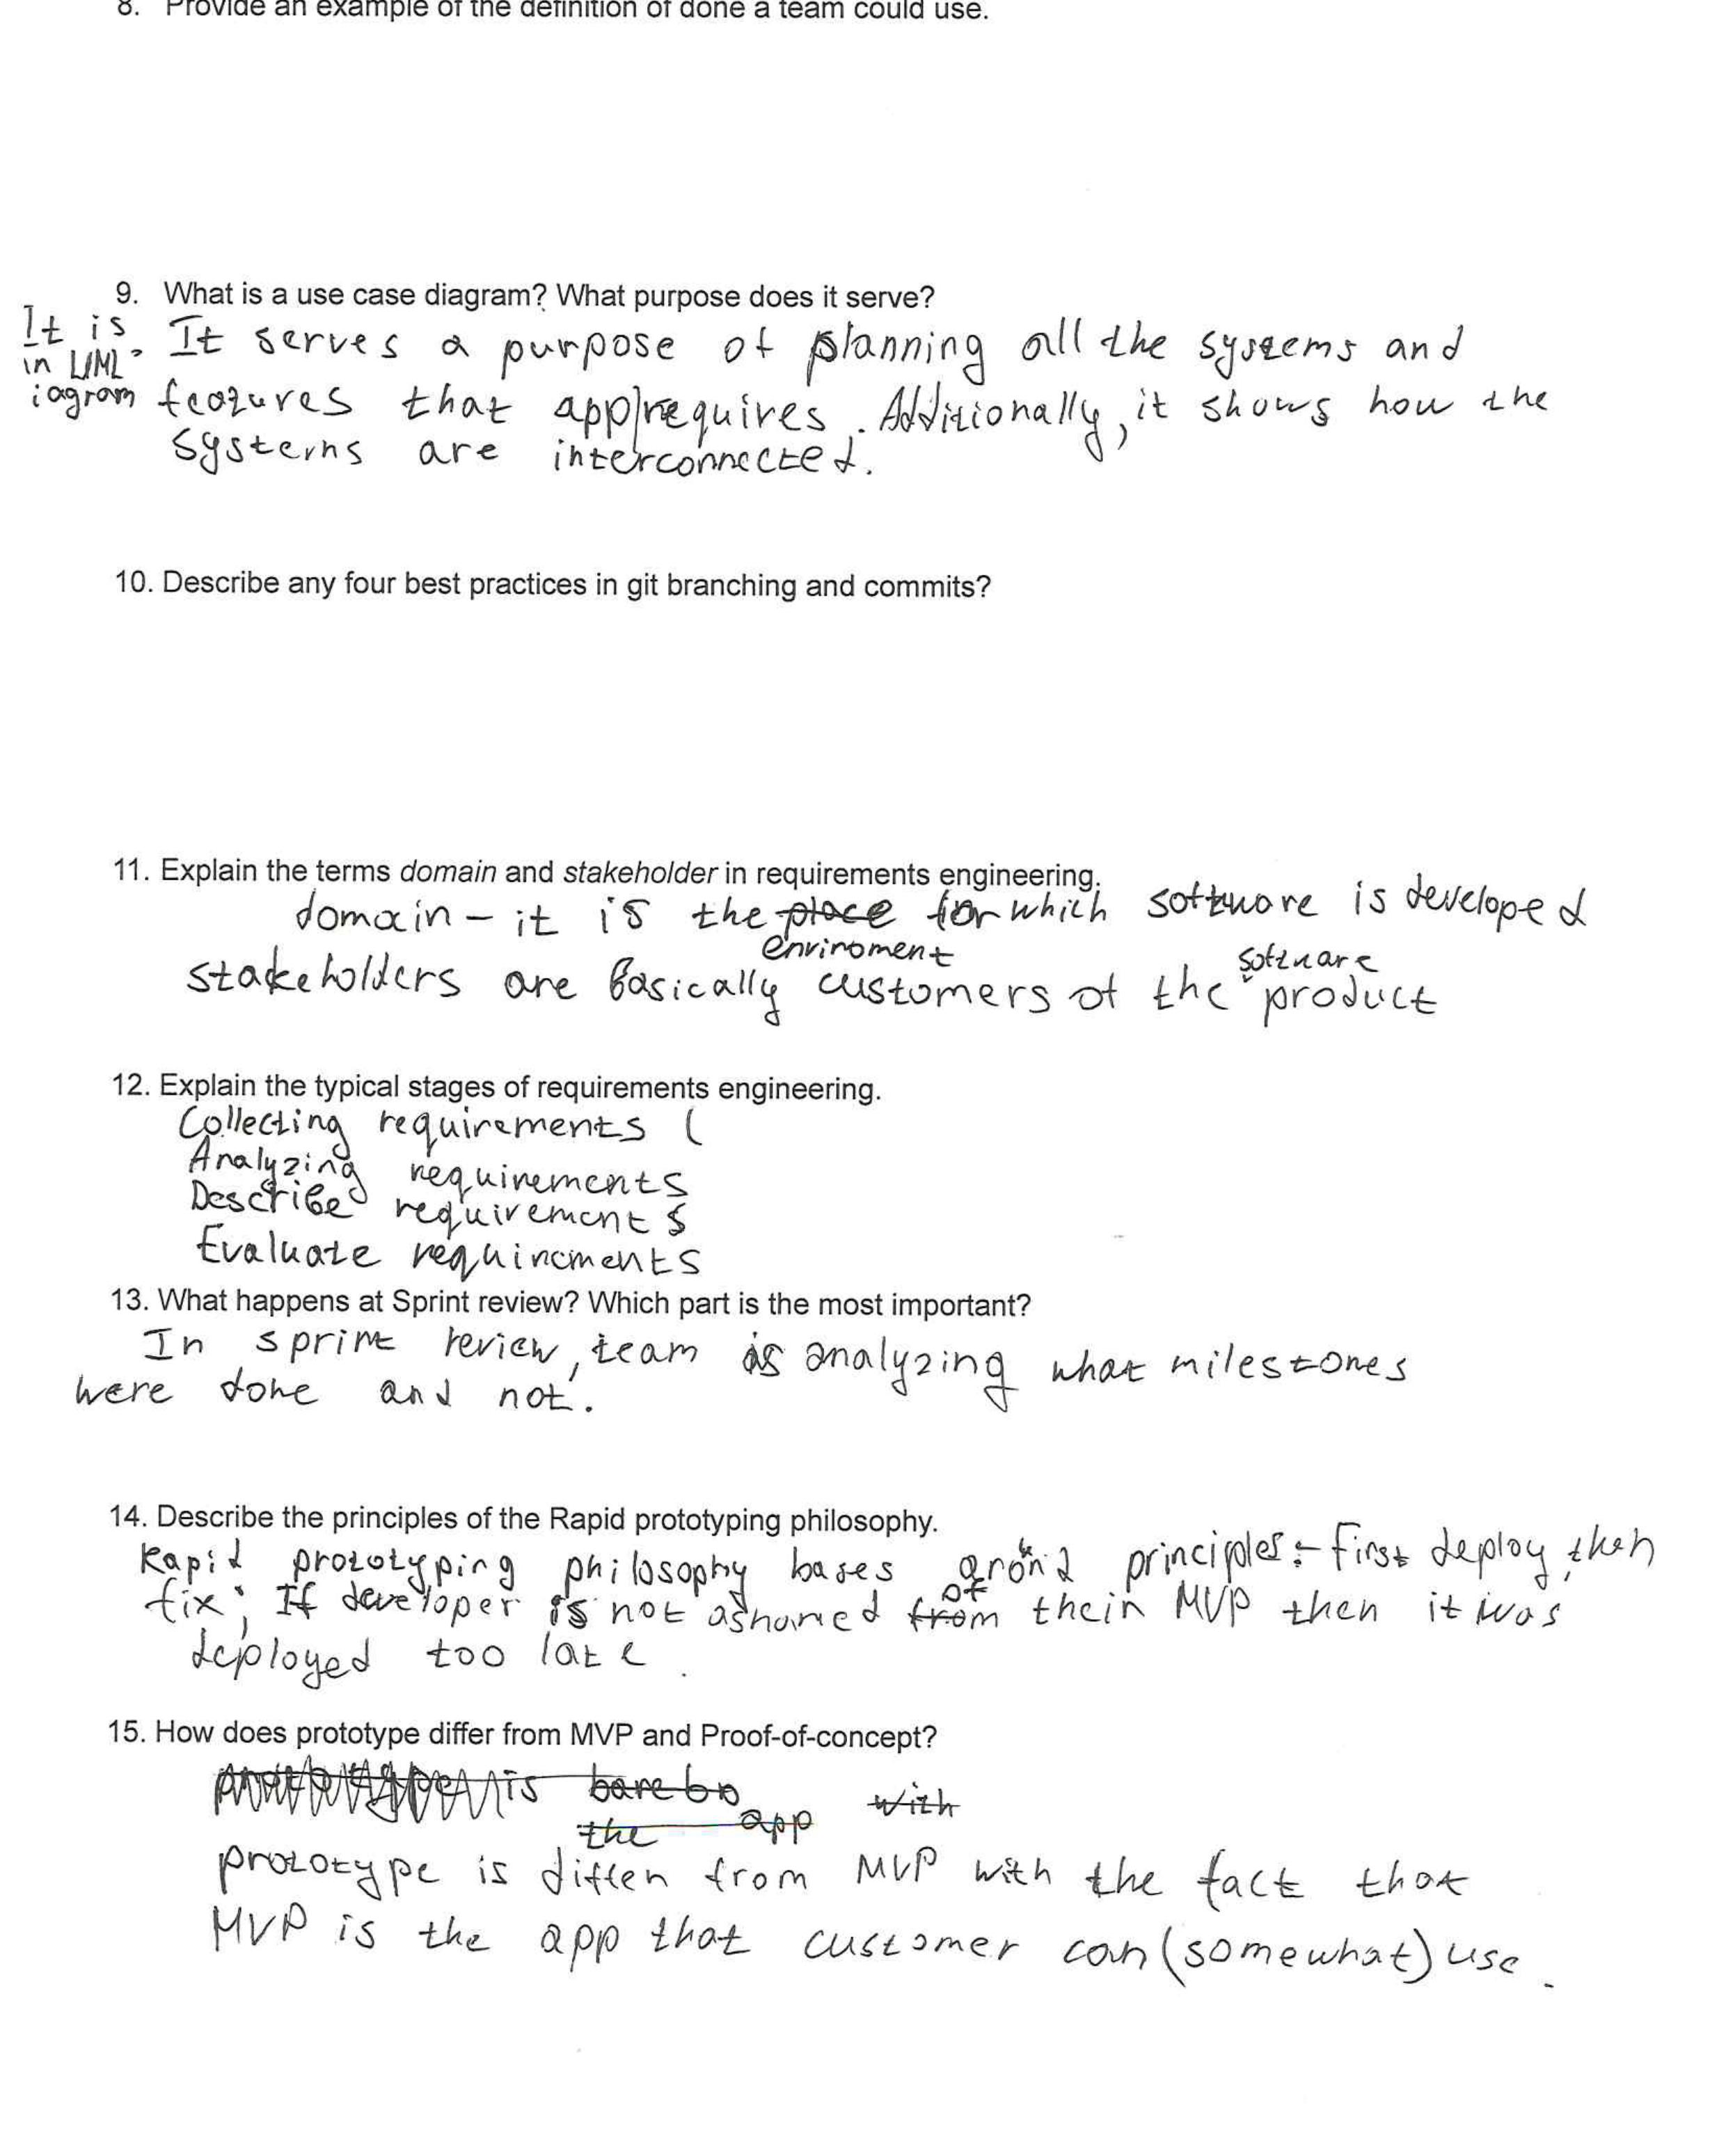 8. Provide an example of the definition of done a team could use.
9. What is a use case diagram? What purpose does it serve?
It is
in UML
iagram
It serves a purpose of planning all the systems and
features that app requires. Additionally, it shows how the
systems are interconnected.
10. Describe any four best practices in git branching and commits?
11. Explain the terms domain and stakeholder in requirements engineering.
domain - it is the place for which software is developed
enviroment
stakeholders are basically customers of the software product
12. Explain the typical stages of requirements engineering.
Collecting requirements (
Analyzing requirements
Describe requirements
Evaluate requirements
13. What happens at Sprint review? Which part is the most important?
In sprint review, team is analyzing what milestones
were done and not.
14. Describe the principles of the Rapid prototyping philosophy.
Rapid prototyping philosophy bases around principles: - first deploy, then
fix; If developer is not ashamed from of their MVP then it was
deployed too late.
15. How does prototype differ from MVP and Proof-of-concept?
is bare bo with
the app
prototype is differ from MVP with the fact that
MVP is the app that customer can (somewhat) use.